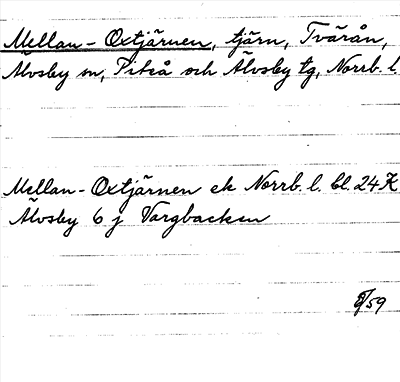 Mellan-Oxtjärnen, tjärn, Tvärån,
Älvsby sn, Piteå och Älvsby tg, Norrb. l.
Mellan-Oxtjärnen ek Norrb. l. bl. 24 K
Älvsby 6 j Vargbacken
/59